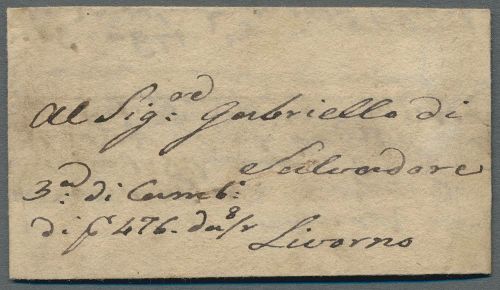 Al Sig:re Gabriello di
Salvadore
3a: di Camb:
di 476.
Livorno